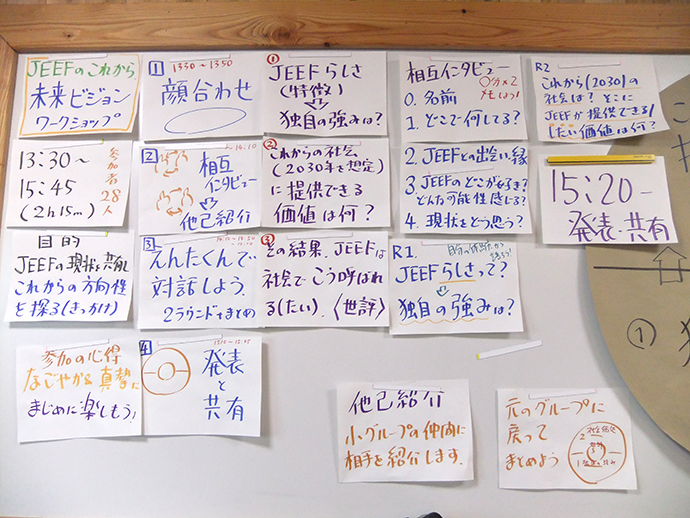 JEEFのこれから
未来ビジョン
ワークショップ
13:30〜
15:45
(2h15m)
参加者28人
目的
JEEFの現状を共有し
これからの方向性
を探る(きっかけ)
参加の心得
なごやか&真摯に
まじめに楽しもう!
1
1330〜1350
顔合わせ
2
相互
インタビュー
他己紹介
3
えんたくんで
対話しよう.
2ラウンド+まとめ
4
発表
と
共有
①
JEEFらしさ
(特徴)
独自の強みは?
②
これからの社会
(2030年を想定)
に提供できる
価値は何?
③
その結果、JEEFは
社会でこう呼ばれ
る(たい).〈世評〉
相互インタビュー
0. 名前
1. どこで何してる?
2. JEEFとの出会い・縁
3. JEEFのどこが好き?
どんな可能性感じる?
4. 現状をどう思う?
R1.
JEEFらしさって?
独自の強みは?
R2
これから(2030)の
社会は?そこに
JEEFが提供できる/
(したい)価値は何?
15:20-
発表・共有
他己紹介
小グループの仲間に
相手を紹介します.
元のグループに
戻って
まとめよう
①